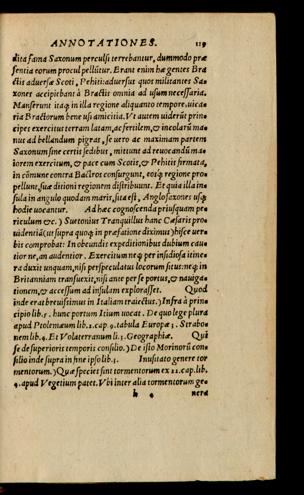 ANNOTATIONES. 119
dita fama Saxonum perculsi terrebantur, dummodo præ
sentia eorum procul pellũtur. Erant enim hæ gentes Bra
ctis aduersæ Scoti, Pehiti: aduersus quos militantes Sa-
xones accipiebant à Bractis omnia ad usum necessaria.
Manserunt itaq; in illa regione aliquanto tempore. uica-
ria Bractorum bene usi amicitia. Vt autem uiderũt prin-
cipes exercitus terram latam, ac fertilem, & incolarũ ma-
nus ad bellandum pigras, se uero ac maximam partem
Saxonum sine certis sedibus, mittunt ad reuocandũ ma-
iorem exercitum, & pace cum Scotis, & Pehitis firmata,
in cõmune contra Bactros consurgunt, eosq; regione pro-
pellunt, suæ ditioni regionem distribuunt. Et quia illa in-
sula in angulo quodam maris, sita est, Anglosaxones usq;
hodie uocantur. Ad hæc cognoscenda priusquam pe-
riculum &c.) Suetonius Tranquillus hanc Cæsaris pro-
uidentiã (ut supra quoq; in præfatione diximus) hisce uer-
bis comprobat: In obeundis expeditionibus dubium cau-
tior ne, an audentior. Exercitum neq; per insidiosa itine-
ra duxit unquam, nisi perspeculatus locorum situs: neq; in
Britanniam transuexit, nisi ante per se portus, & nauiga-
tionem, & accessum ad insulam explorasset. Quod
inde erat breuissimus in Italiam traiectus.) Infra à prin-
cipio lib. 5. hunc portum Itium uocat. De quo lege plura
apud Ptolemæum lib. 2. cap. 9. tabula Europæ 3. Strabo-
nem lib. 4. Et Volaterranum li. 3. Geographiæ. Qui
se de superioris temporis consilio.) De isto Morinorũ con-
silio inde supra in fine ipso lib. 3. Inusitato genere tor
mentorum.) Quæ species sint tormentorum ex 22. cap. lib.
4. apud Vegetium patet. Vbi inter alia tormentorum ge-
h 4 nera